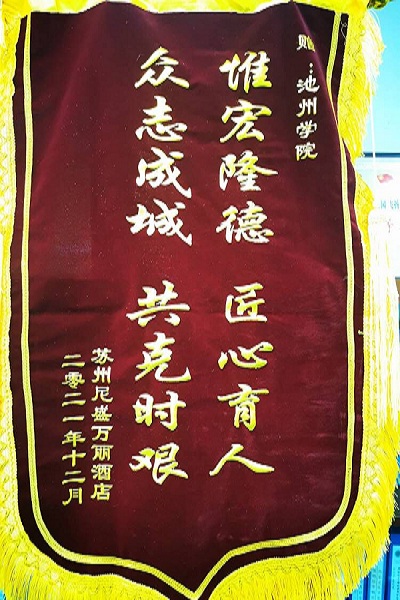 赠：池州学院
惟宏隆德 匠心育人
众志成城 共克时艰
苏州尼盛万丽酒店
二零二一年十二月